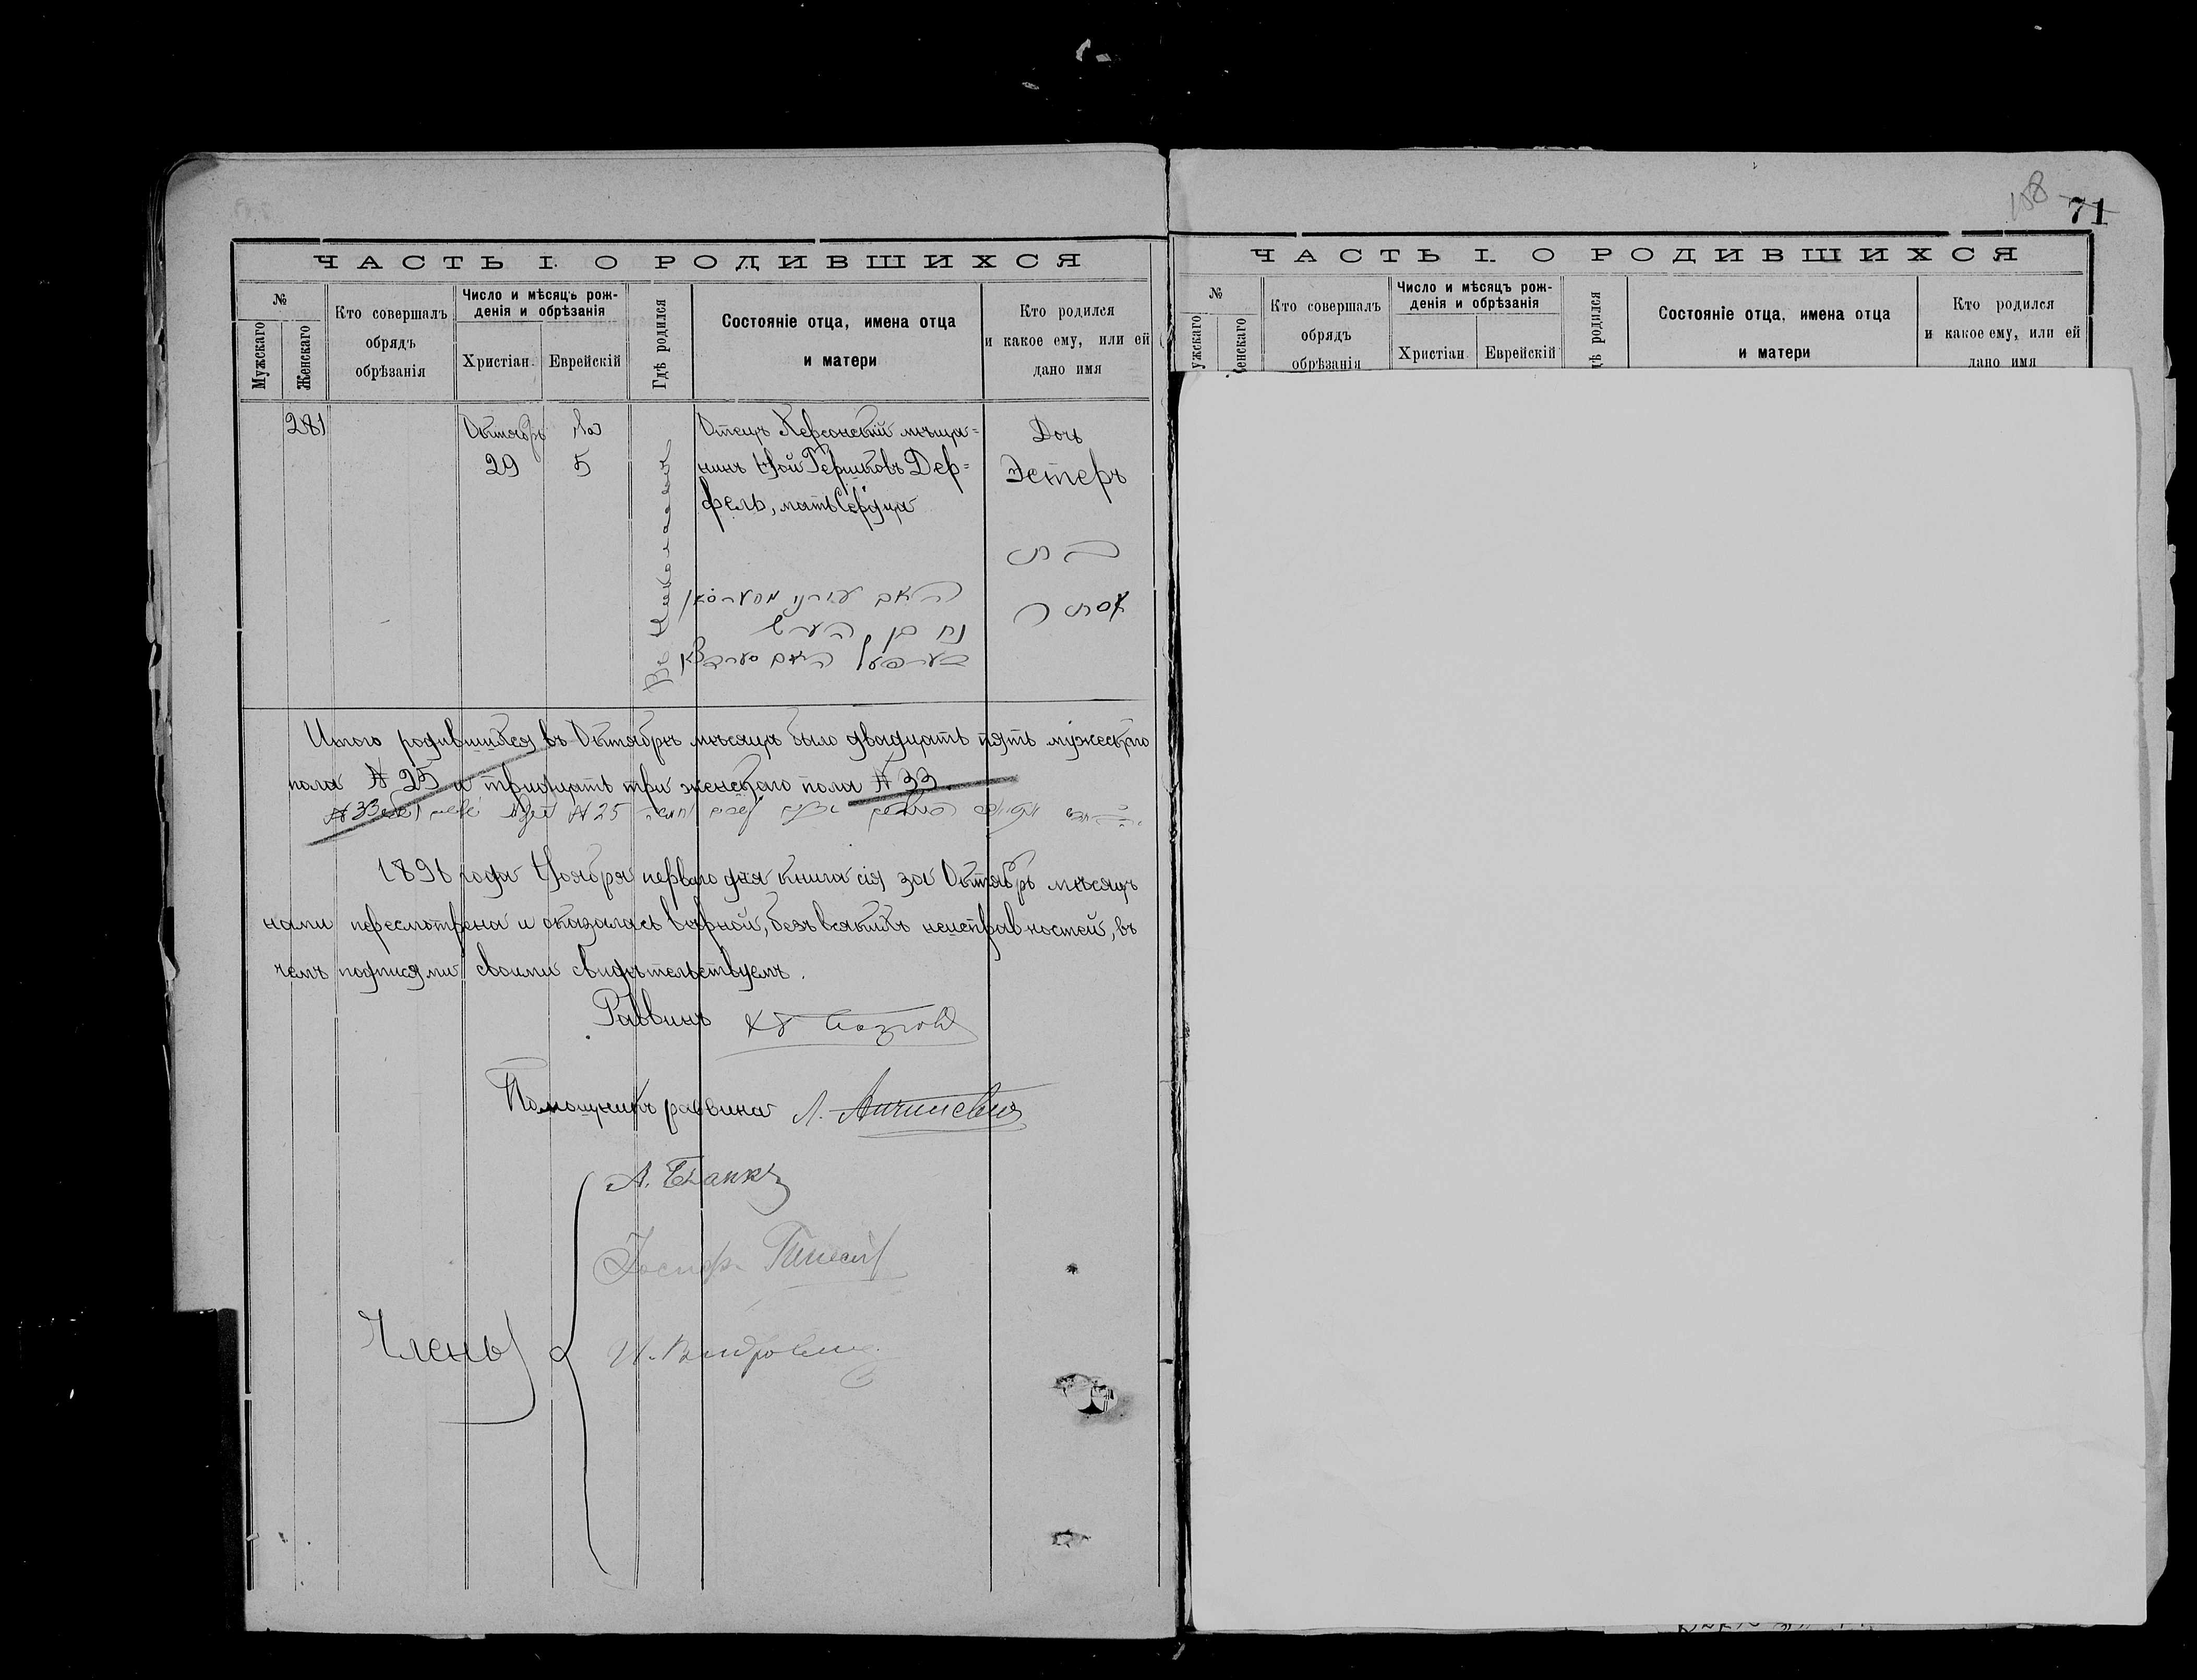 ЧАСТЬ I. О РОДИВШИХСЯ
№
Мужскаго
Женскаго
Кто совершалъ
обрядъ
обрѣзанія
Число и мѣсяцъ рож-
денія и обрѣзанія
Христіан.
Еврейскій
Гдѣ родился
Состояніе отца, имена отца
и матери
Кто родился
и какое ему, или ей
дано имя
281
Октябрь
29
5
Въ Николаевѣ
Отецъ Херсонскій мѣща=
нинъ Ной Гершковъ Дер=
фель, мать Сердца
נח בן הערש
Дочь
Эстеръ
בת
אסתר
Итого родившихся въ Октябрѣ мѣсяцѣ было двадцать пять мужескаго
пола № 25 и тридцать три женскаго пола № 33.
№ 33 № 25
1896 года Ноября перваго дня книга сія за Октябрь мѣсяцъ
нами пересмотрена и оказалась вѣрной, безъ всякихъ неисправностей, въ
чемъ подписями своими свидѣтельствуемъ.
Раввинъ
Помощникъ раввина Л.
Члены
А. Бланкъ
Іосифъ
И.
108
71
ЧАСТЬ I. О РОДИВШИХСЯ
№
ужскаго
енскаго
Кто совершалъ
обрядъ
обрѣзанія
Число и мѣсяцъ рож-
денія и обрѣзанія
Христіан.
Еврейскій
дѣ родился
Состояніе отца, имена отца
и матери
Кто родился
и какое ему, или ей
дано имя